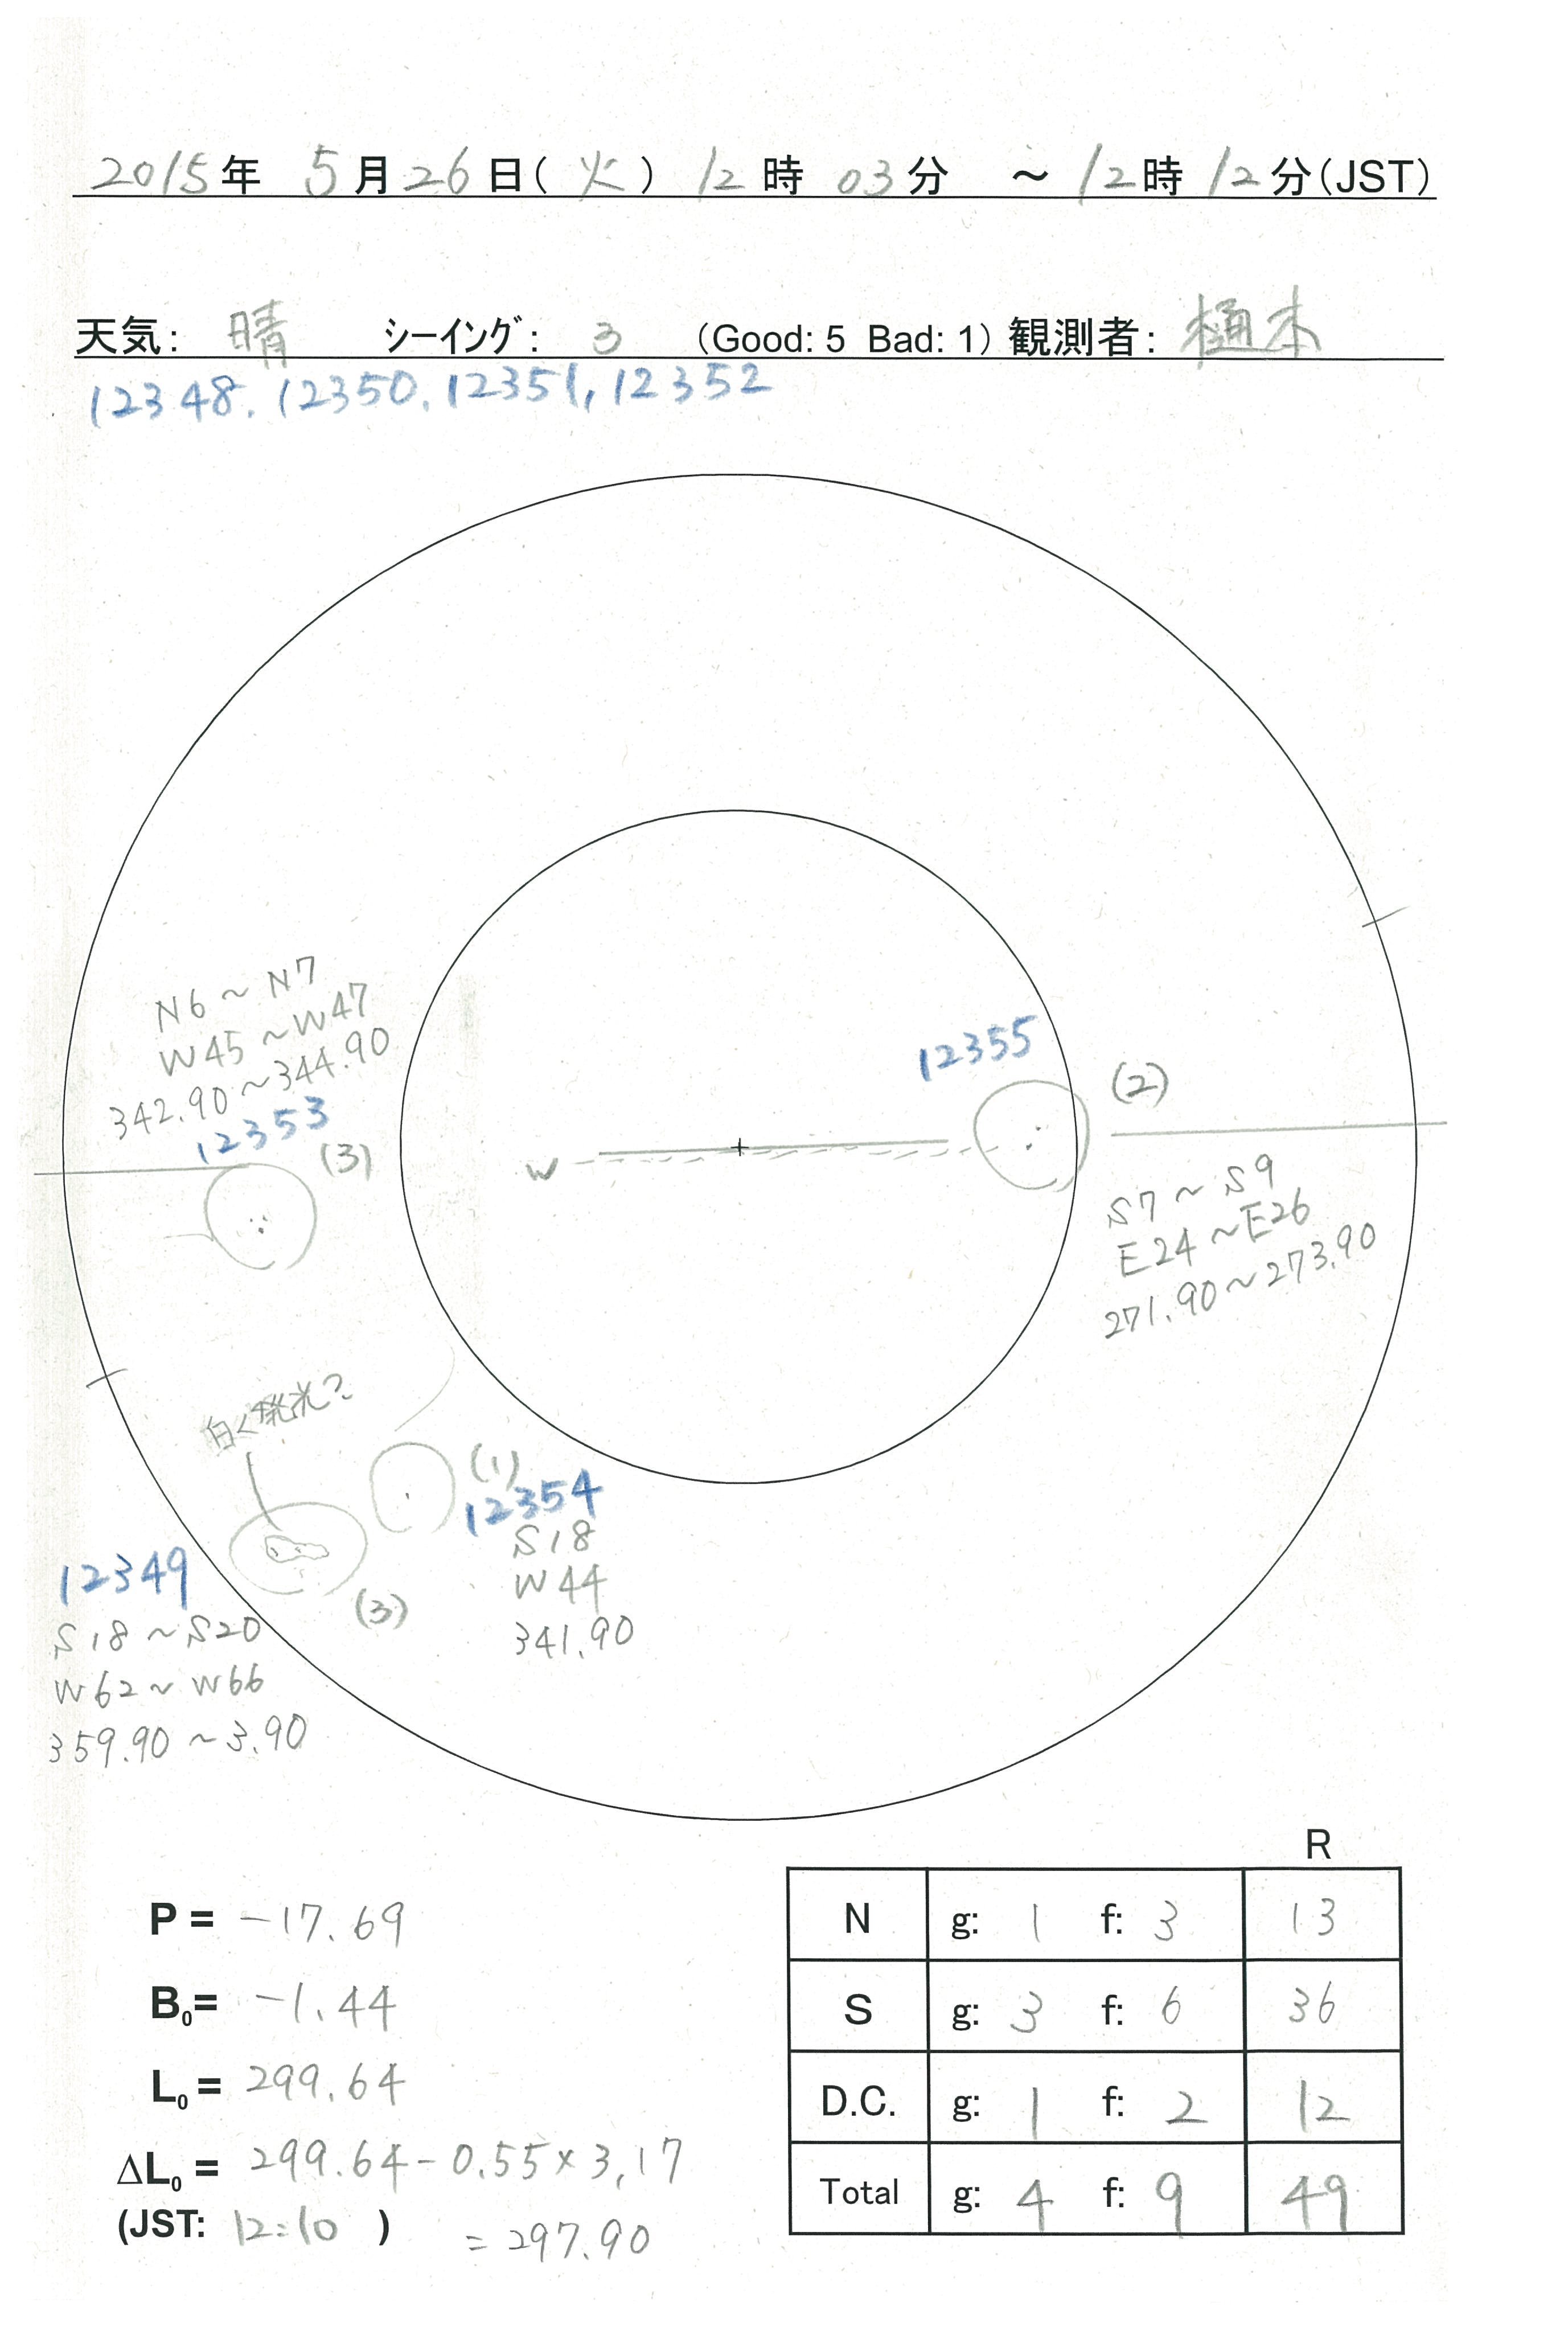 2015年 5月26日(火) 12時 03分 ～12時12分(JST)
天気: 晴 ｼｰｲﾝｸﾞ: 3 (Good: 5 Bad: 1) 観測者: 樋本
12348. 12350. 12351, 12352
N6～N7
W45～W47
342.90～344.90
12353
(3)
W
12355
(2)
S7～S9
E24～E26
271.90～273.90
白く発光?
(1)
12354
S18
W44
341.90
12349
(3)
S18～S20
W62～W66
359.90～3.90
R
N g: 1 f: 3 13
S g: 3 f: 6 36
D.C. g: 1 f: 2 12
Total g: 4 f: 9 49
P = -17.69
B₀= -1.44
L₀= 299.64
ΔL₀ = 299.64-0.55×3,17
(JST: 12:10 ) = 297.90